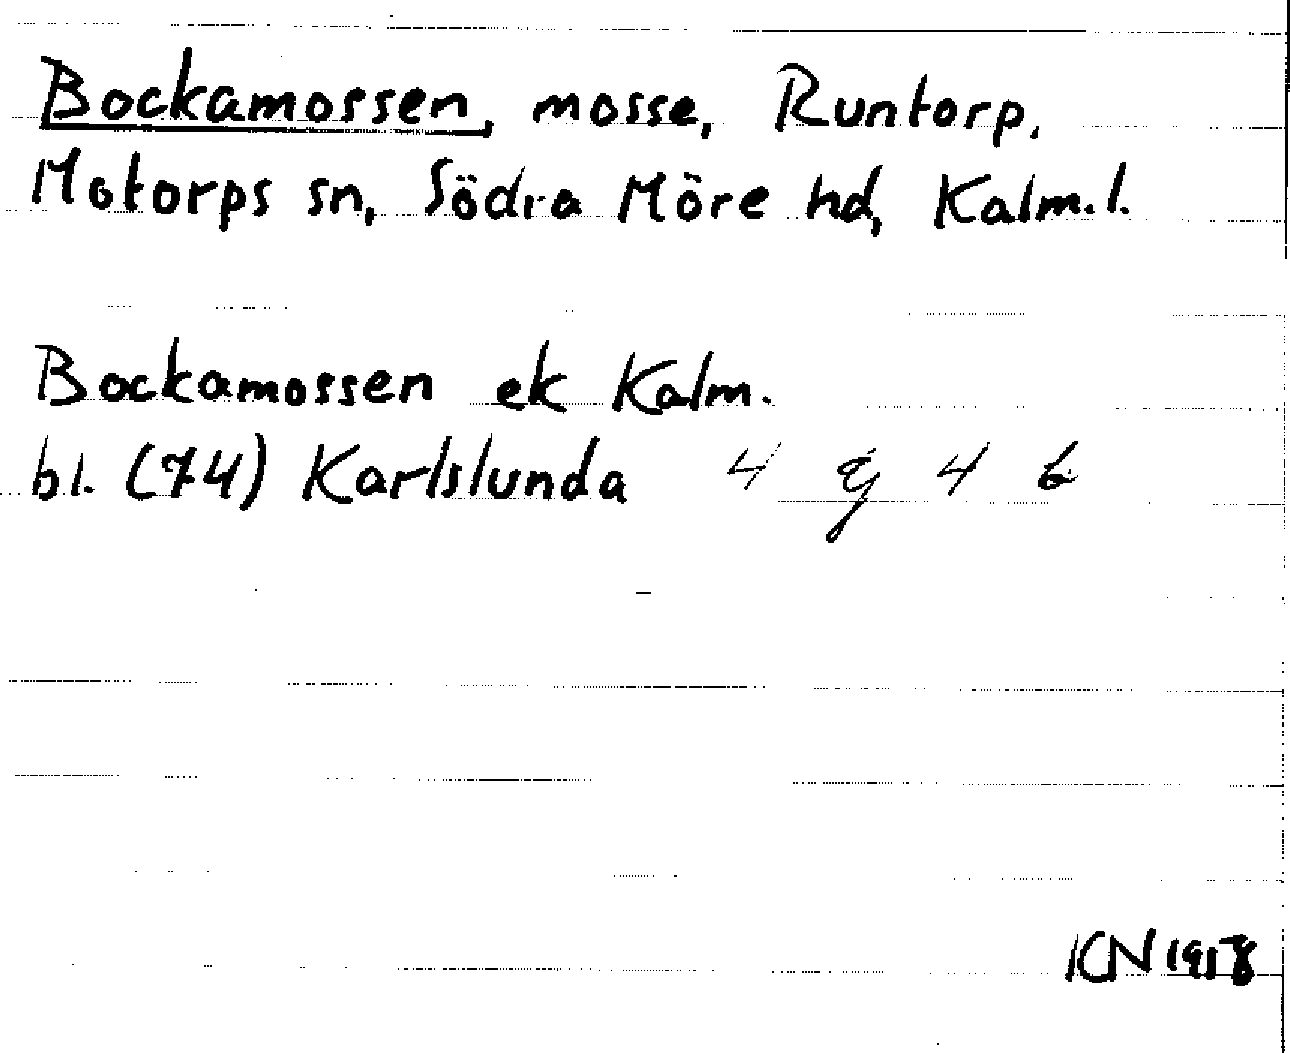 Bockamossen, mosse, Runtorp,
Motorps sn, Södra Möre hd, Kalm.l.
Bockamossen ek Kalm.
bl. (74) Karlslunda 4 g 4 b
KN 1978